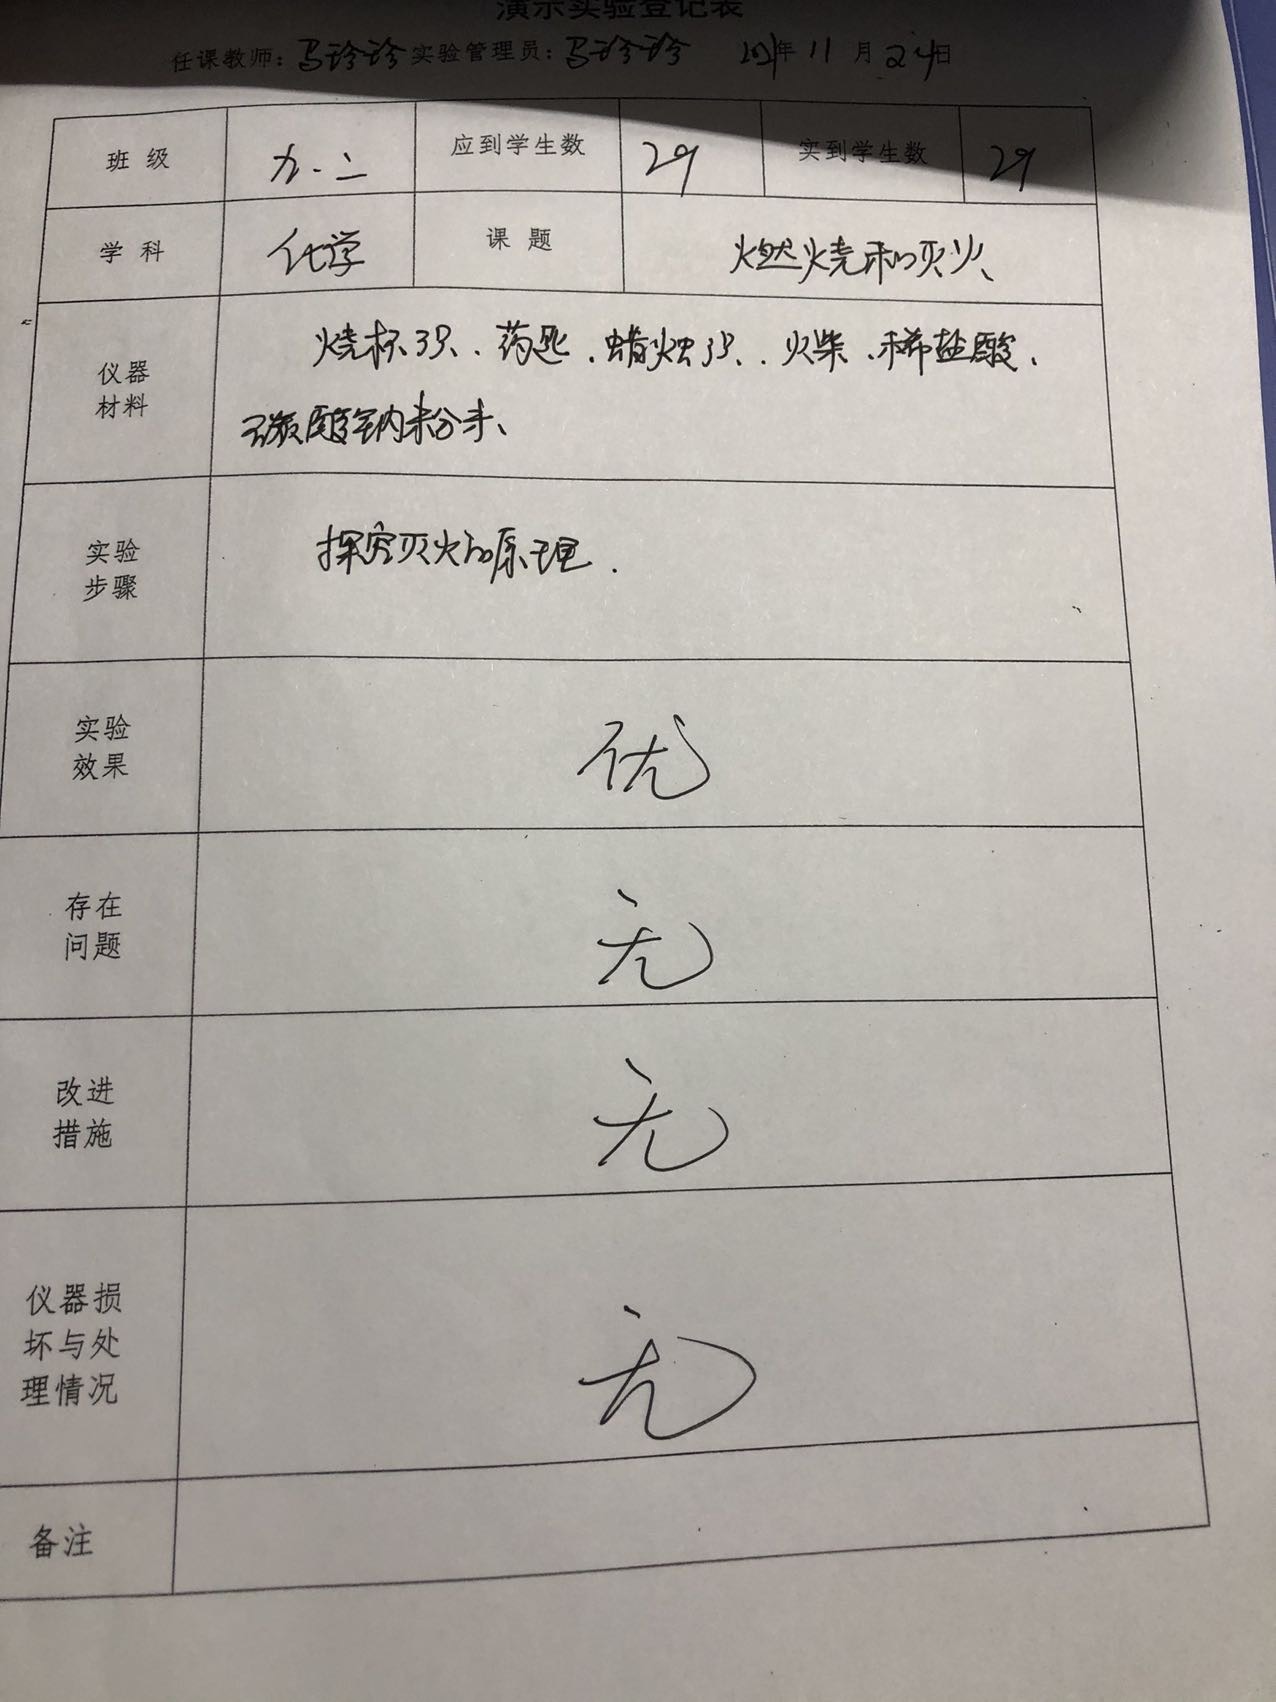 演示实验登记表
任课教师：马珍珍 实验管理员：马珍珍 2021年11月24日
班级 九.二 应到学生数 29 实到学生数 29
学科 化学 课题 燃烧和灭火、
仪器
材料
烧杯3只、药匙、蜡烛3只、火柴、稀盐酸、
碳酸钠粉末、
实验
步骤
探究灭火的原理.
实验
效果
优
存在
问题
无
改进
措施
无
仪器损
坏与处
理情况
无
备注